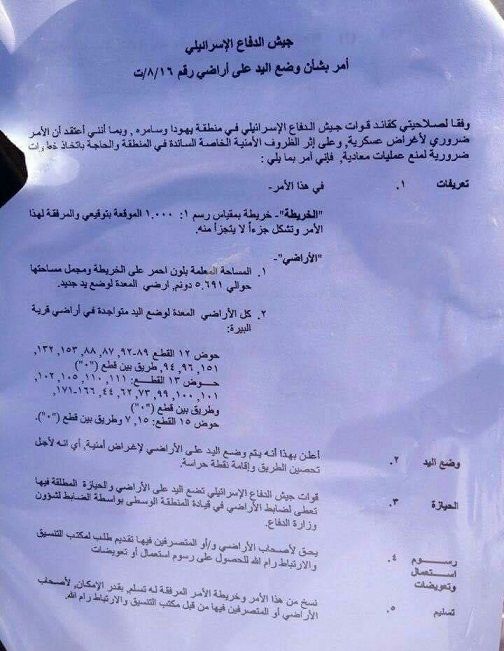 جيش الدفاع الإسرائيلي
أمر بشأن وضع اليد على أراضي رقم ٨/١٦/ت
وفقا لصلاحيتي كقائد قوات جيش الدفاع الإسرائيلي في منطقة يهودا وسامره, وبما أنني أعتقد أن الأمر
ضروري لأغراض عسكرية, وعلى إثر الظروف الأمنية الخاصة السائدة في المنطقة والحاجة باتخاذ خطوات
ضرورية لمنع عمليات معادية, فإني أمر بما يلي :
تعريفات ١. في هذا الأمر-
"الخريطة"- خريطة بمقياس رسم ١: ١.٠٠٠ الموقعة بتوقيعي والمرفقة لهذا
الأمر وتشكل جزءاً لا يتجزأ منه.
"الأراضي"-
١. المساحة المعلمة بلون احمر على الخريطة ومجمل مساحتها
حوالي ٥.٦٩١ دونم, ارضي المعدة لوضع يد جديد.
٢. كل الأراضي المعدة لوضع اليد متواجدة في أراضي قرية
البيرة:
حوض ١٢ القطع ٨٩-٩٢, ٨٧, ٨٨, ١٥٣, ١٣٢,
١٥١, ٩٦, ٩٤, طريق بين قطع ("٠")
حوض ١٣ القطع: ١١١, ١١٠, ١٠٥, ١٠٢,
١٠١, ١٠٠, ٩٩, ٧٣, ٦٢, ٤٤, ١٦٦-١٧١,
وطريق بين قطع ("٠")
حوض ١٥ القطع: ١٥, ٧ وطريق بين قطع ("٠").
وضع اليد ٢. أعلن بهذا أنه يتم وضع اليد على الأراضي لإغراض أمنية, أي انه لأجل
تحصين الطريق وإقامة نقطة حراسة.
الحيازة ٣. قوات جيش الدفاع الإسرائيلي تضع اليد على الأراضي والحيازة المطلقة فيها
تعطى لضابط الأراضي في قيادة المنطقة الوسطى بواسطة الضابط لشؤون
وزارة الدفاع.
رسوم ٤. يحق لأصحاب الأراضي و/أو المتصرفين فيها تقديم طلب لمكتب التنسيق
استعمال والارتباط رام الله للحصول على رسوم استعمال أو تعويضات
وتعويضات
تسليم ٥. نسخ من هذا الأمر وخريطة الأمر المرفقة له تسلم, بقدر الإمكان, لأصحاب
الأراضي أو المتصرفين فيها من قبل مكتب التنسيق والارتباط رام الله.